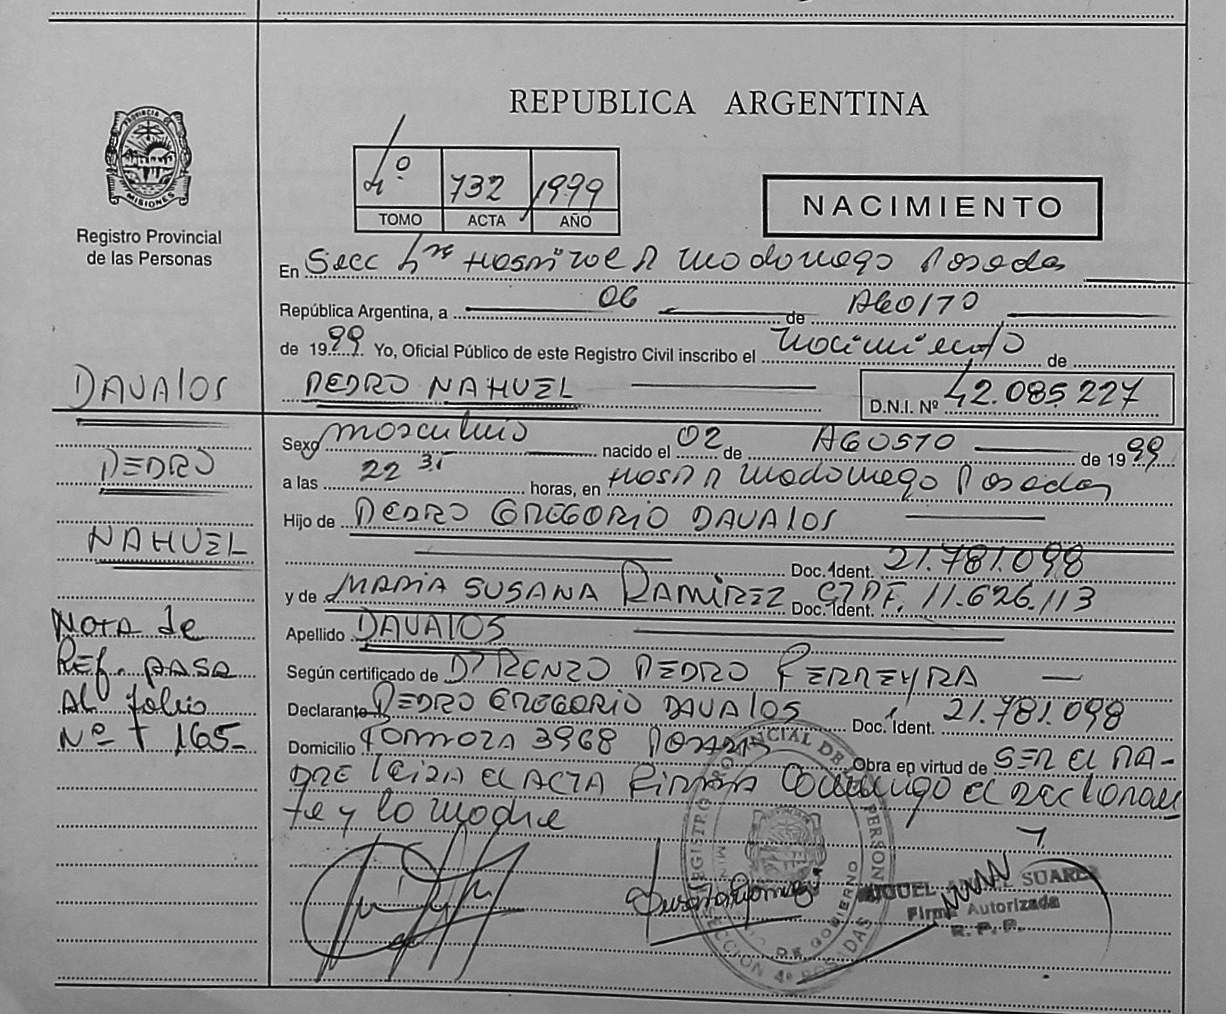 REPUBLICA ARGENTINA
PROVINCIA DE
MISIONES
Registro Provincial
de las Personas
732 1999
TOMO ACTA AÑO
NACIMIENTO
En Secc Posadas
República Argentina, a 06 de AGOSTO
de 1999 Yo, Oficial Público de este Registro Civil inscribo el nacimiento de
DAVALOS
PEDRO NAHUEL
D.N.I. Nº 42.085.227
PEDRO
NAHUEL
Sexo masculino nacido el 02 de AGOSTO de 1999
a las 22 35 horas, en Hosp R Madariaga Posadas
Hijo de PEDRO GREGORIO DAVALOS
Doc. Ident. 21.781.098
y de MARIA SUSANA RAMIREZ Doc. Ident. 11.626.113
Apellido DAVALOS
Nota de
Ref. pasa
Al folio
Nº 165-
Según certificado de Dr RENZO PEDRO FERREYRA
Declarante PEDRO GREGORIO DAVALOS Doc. Ident. 21.781.098
Domicilio FORMOZA 3968 POSADAS Obra en virtud de SER EL PA-
DRE leida el ACTA FIRMAN conmigo el declaran
te y la madre
REGISTRO PROVINCIAL DE LAS PERSONAS
DE GOBIERNO
SECCION 4º POSADAS
MIGUEL ANGEL SUAREZ
Firma Autorizada
R. P. P.